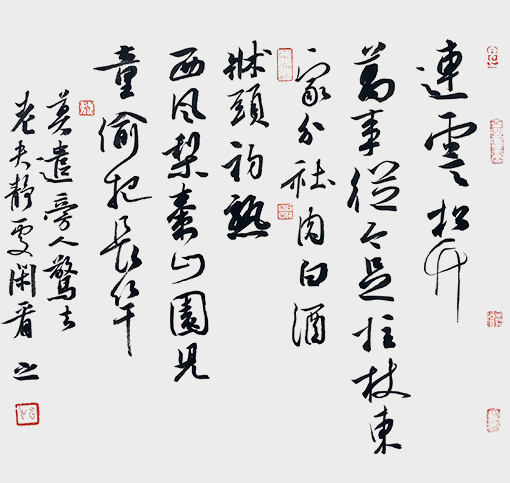 連雲松竹
萬事從今足拄杖東
家分社肉白酒
牀頭初熟
西风梨棗山園兒
童偷把長竿
莫遣旁人驚去
老夫靜處閑看